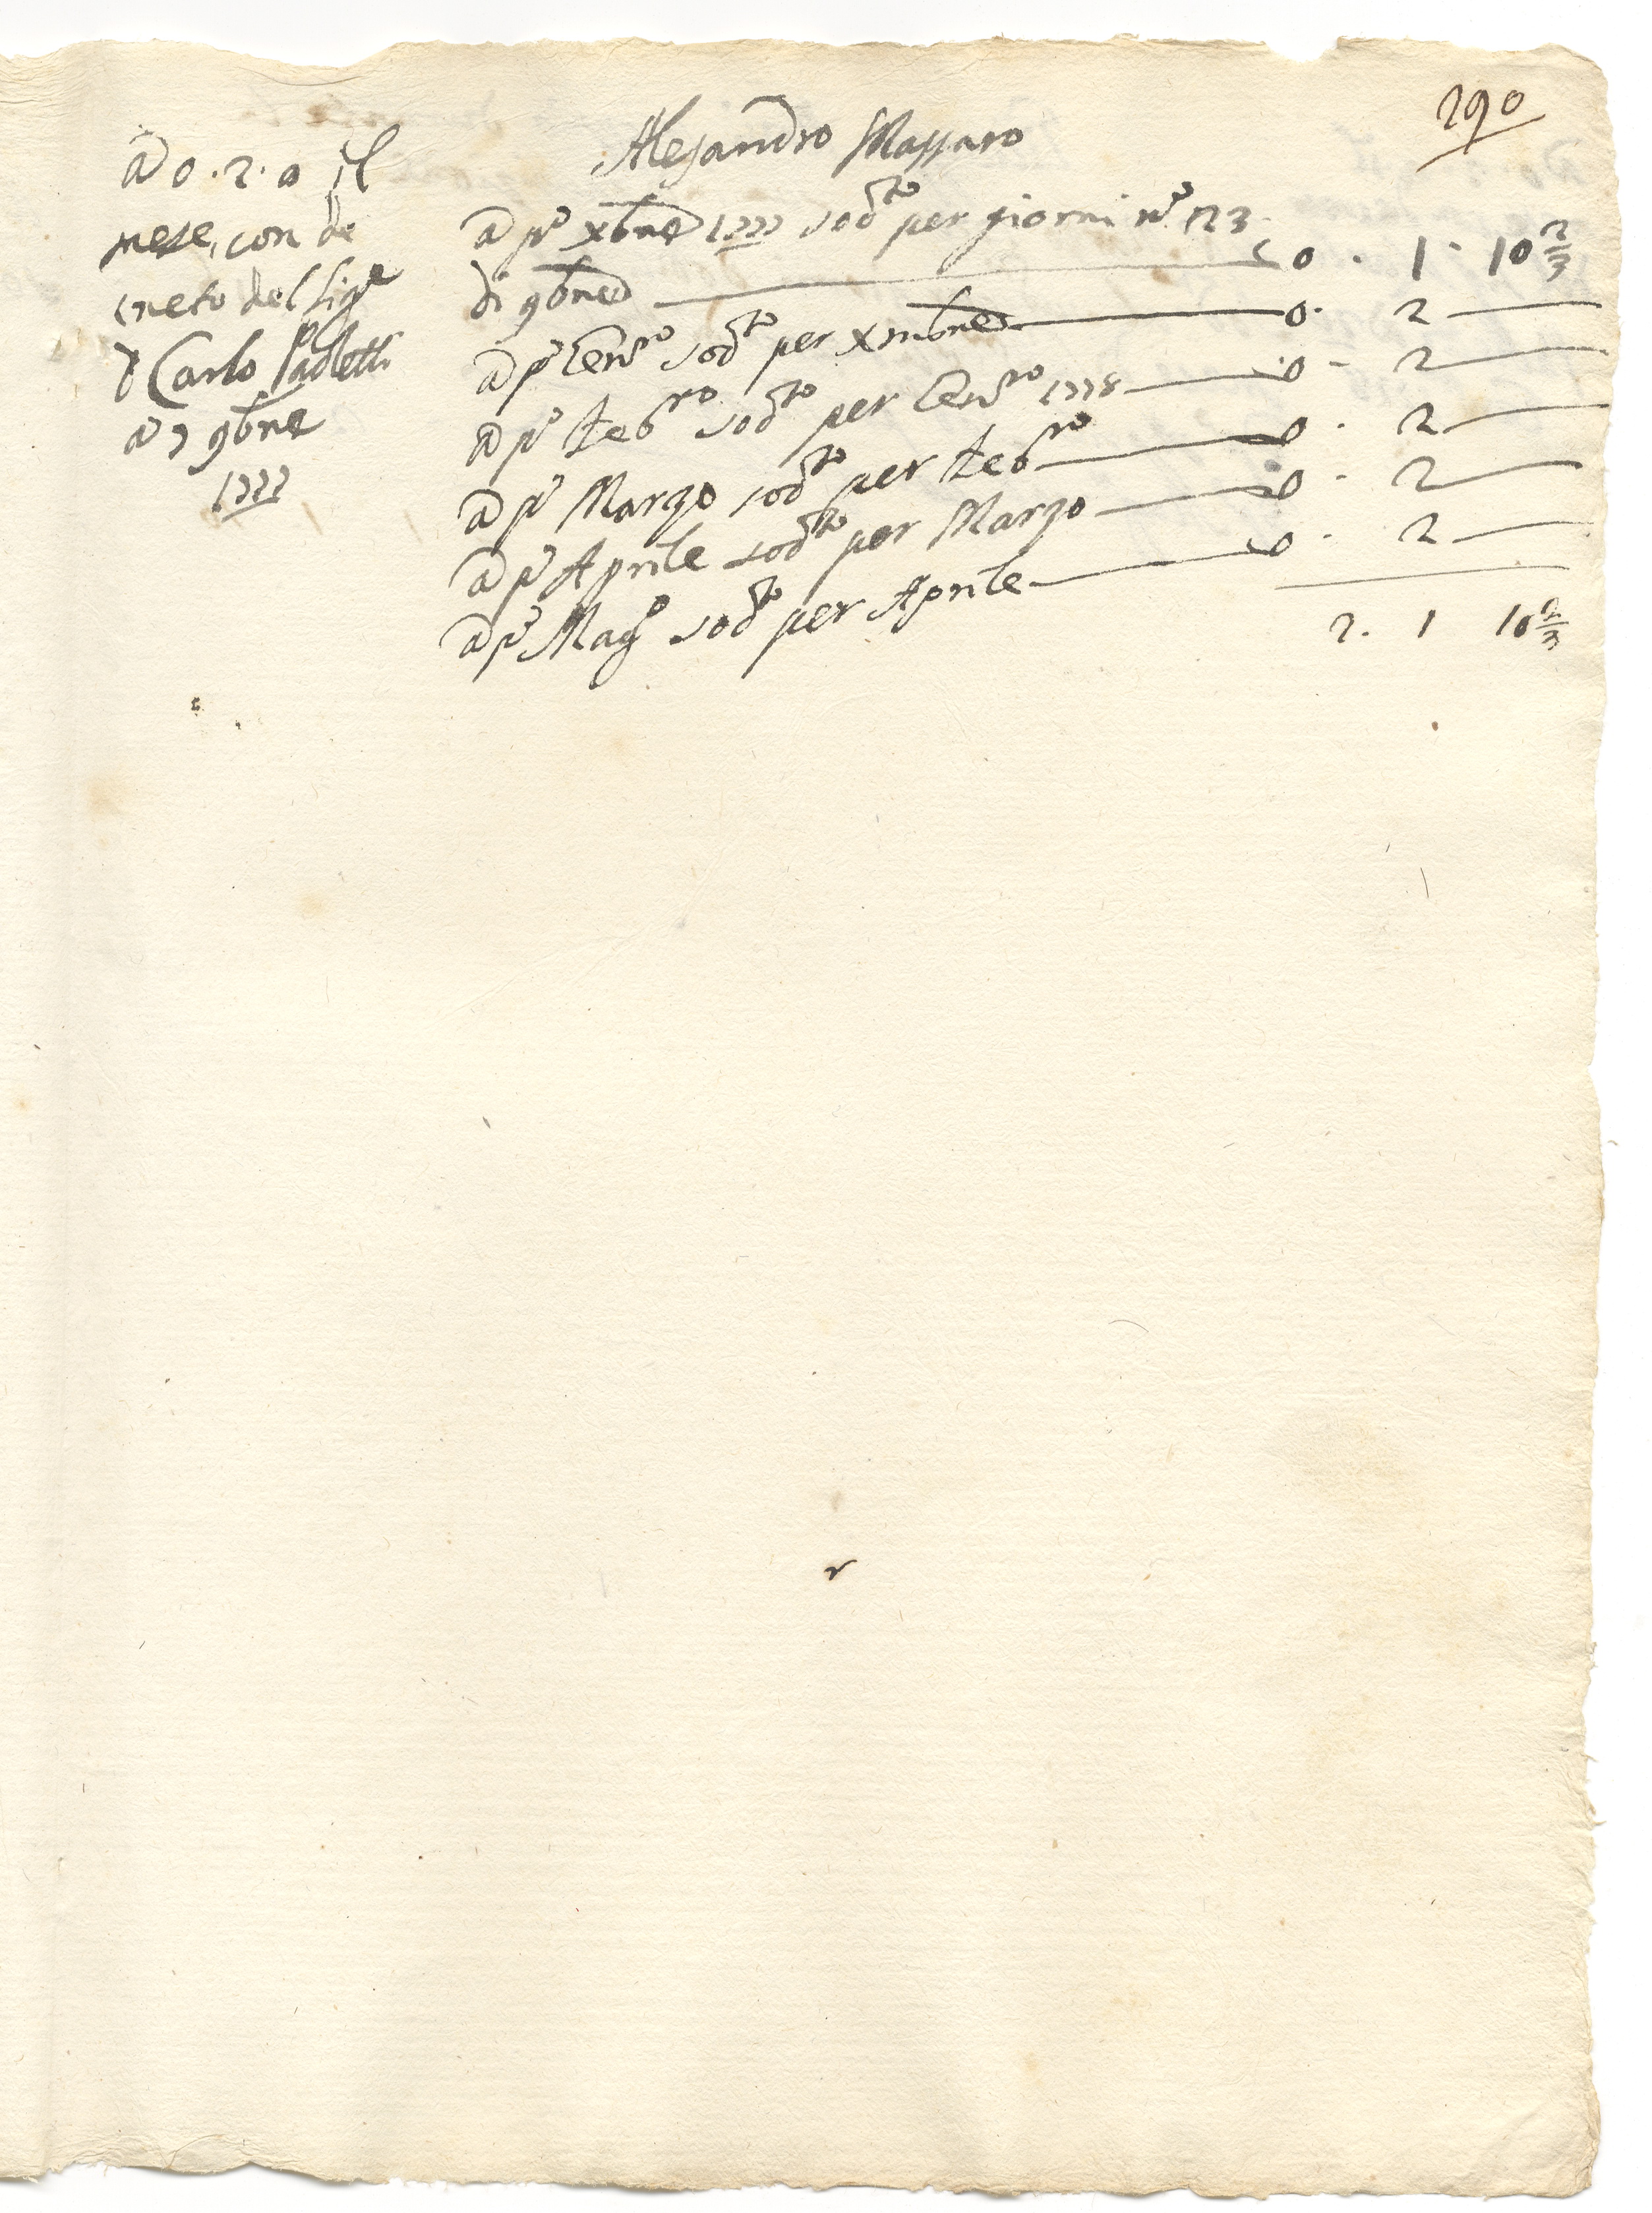 290
Alesandro Massaro
a 0.2.0 il
mese, con de
creto del Sig.e
D Carlo Paoletti
a 7 9bre
1777
a p.o xbre 1777 sod.to per giorni n.o 23
di 9bre 0. 1. 10 2/3
a p.o Gen.ro sod.to per xmbre 0. 2
a p.o Feb.ro sod.to per Gen.ro 1778 0. 2
a p.o Marzo sod.to per Feb.ro 0. 2
a p.o Aprile sod.to per Marzo 0. 2
a p.o Mag.o sod.to per Aprile 0. 2
2. 1 10 2/3